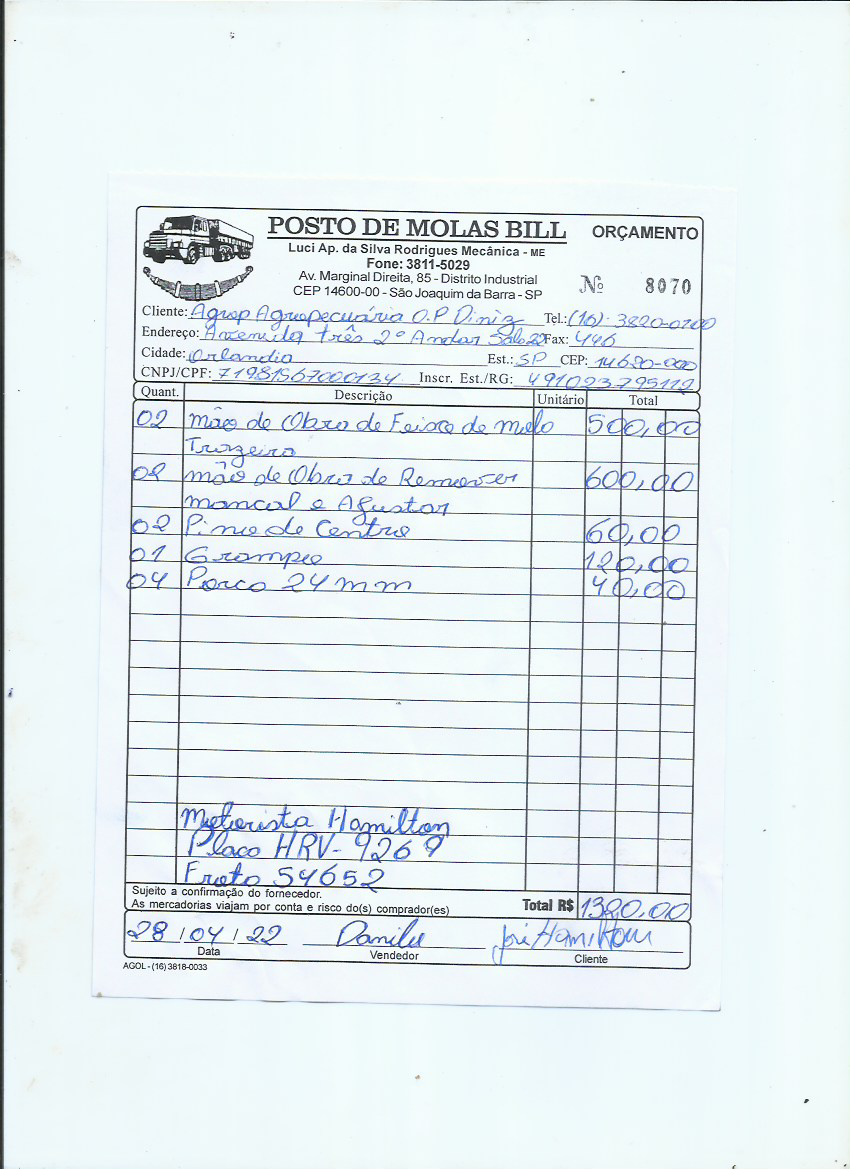 POSTO DE MOLAS BILL
ORÇAMENTO
Luci Ap. da Silva Rodrigues Mecânica - ME
Fone: 3811-5029
Av. Marginal Direita, 85 - Distrito Industrial
CEP 14600-00 - São Joaquim da Barra - SP
Nº 8070
Cliente: Agrop Agropecuária O.P Diniz Tel.: (16) 3820-0700
Endereço: Avenida três 2º Andar Sala 22 Fax: 446
Cidade: Orlandia Est.: SP CEP: 14620-000
CNPJ/CPF: 71981567000134 Inscr. Est./RG: 491023795112
Quant. Descrição Unitário Total
02 mão de Obra de Feixo de Mola 500,00
Trazeiro
mão de Obra de Remover 600,00
mancal e Ajustar
02 Pino de Centro 60,00
01 Grampo 120,00
04 Porca 24mm 40,00
Motorista Hamilton
Placa HRV-9269
Frota 54652
Sujeito a confirmação do fornecedor.
As mercadorias viajam por conta e risco do(s) comprador(es)
Total R$ 1320,00
28 / 04 / 22 Danilo José Hamilton
Data Vendedor Cliente
AGOL - (16) 3818-0033